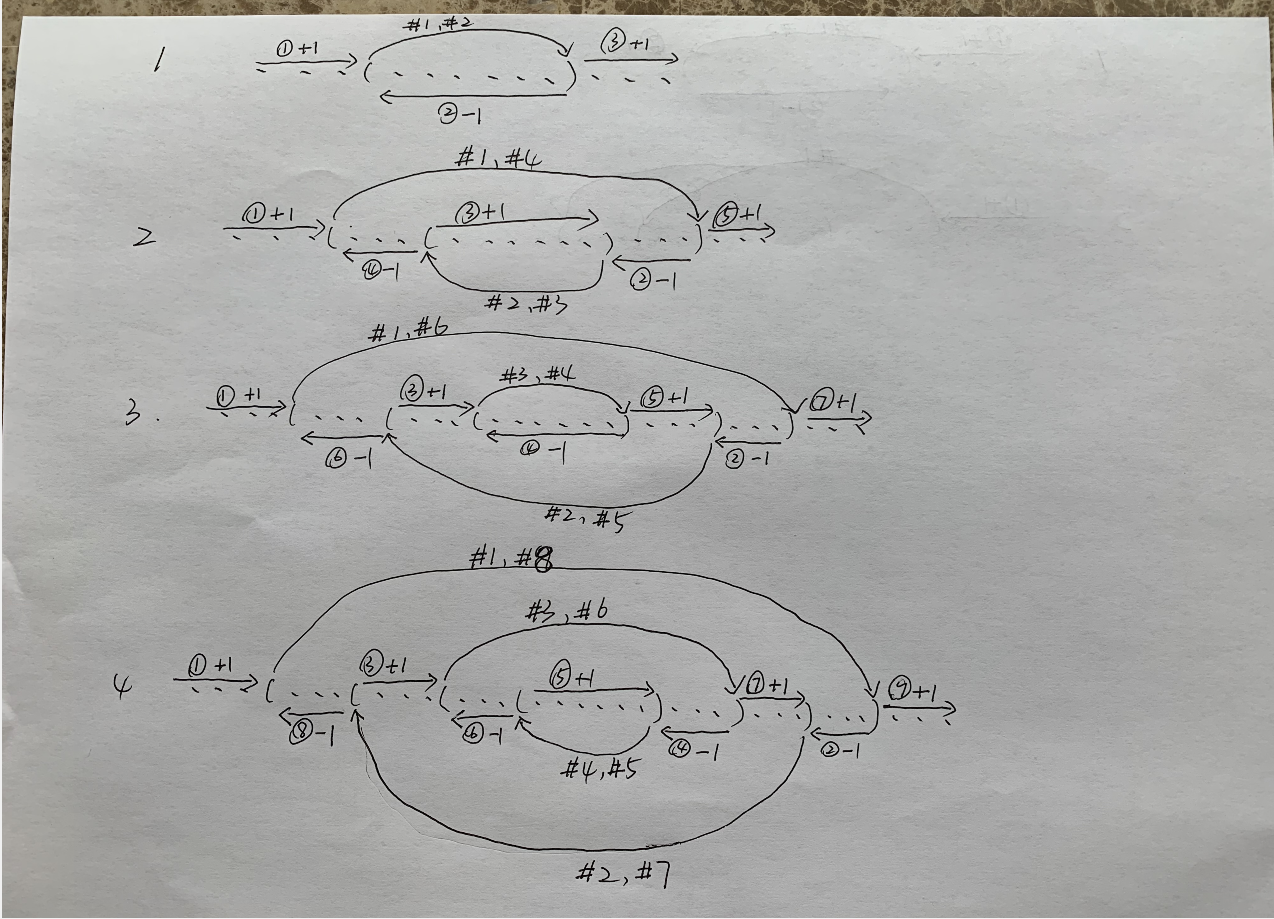 #1, #2
1 ①+1 ③+1
( )
②-1
#1, #4
2 ①+1 ③+1 ⑤+1
( ( ) )
④-1 ②-1
#2, #3
#1, #6
#3, #4
3. ①+1 ③+1 ⑤+1 ⑦+1
( ( ( ) ) )
⑥-1 ④-1 ②-1
#2, #5
#1, #8
#3, #6
4 ①+1 ③+1 ⑤+1 ⑦+1 ⑨+1
( ( ( ( ) ) ) )
⑧-1 ⑥-1 ④-1 ②-1
#4, #5
#2, #7